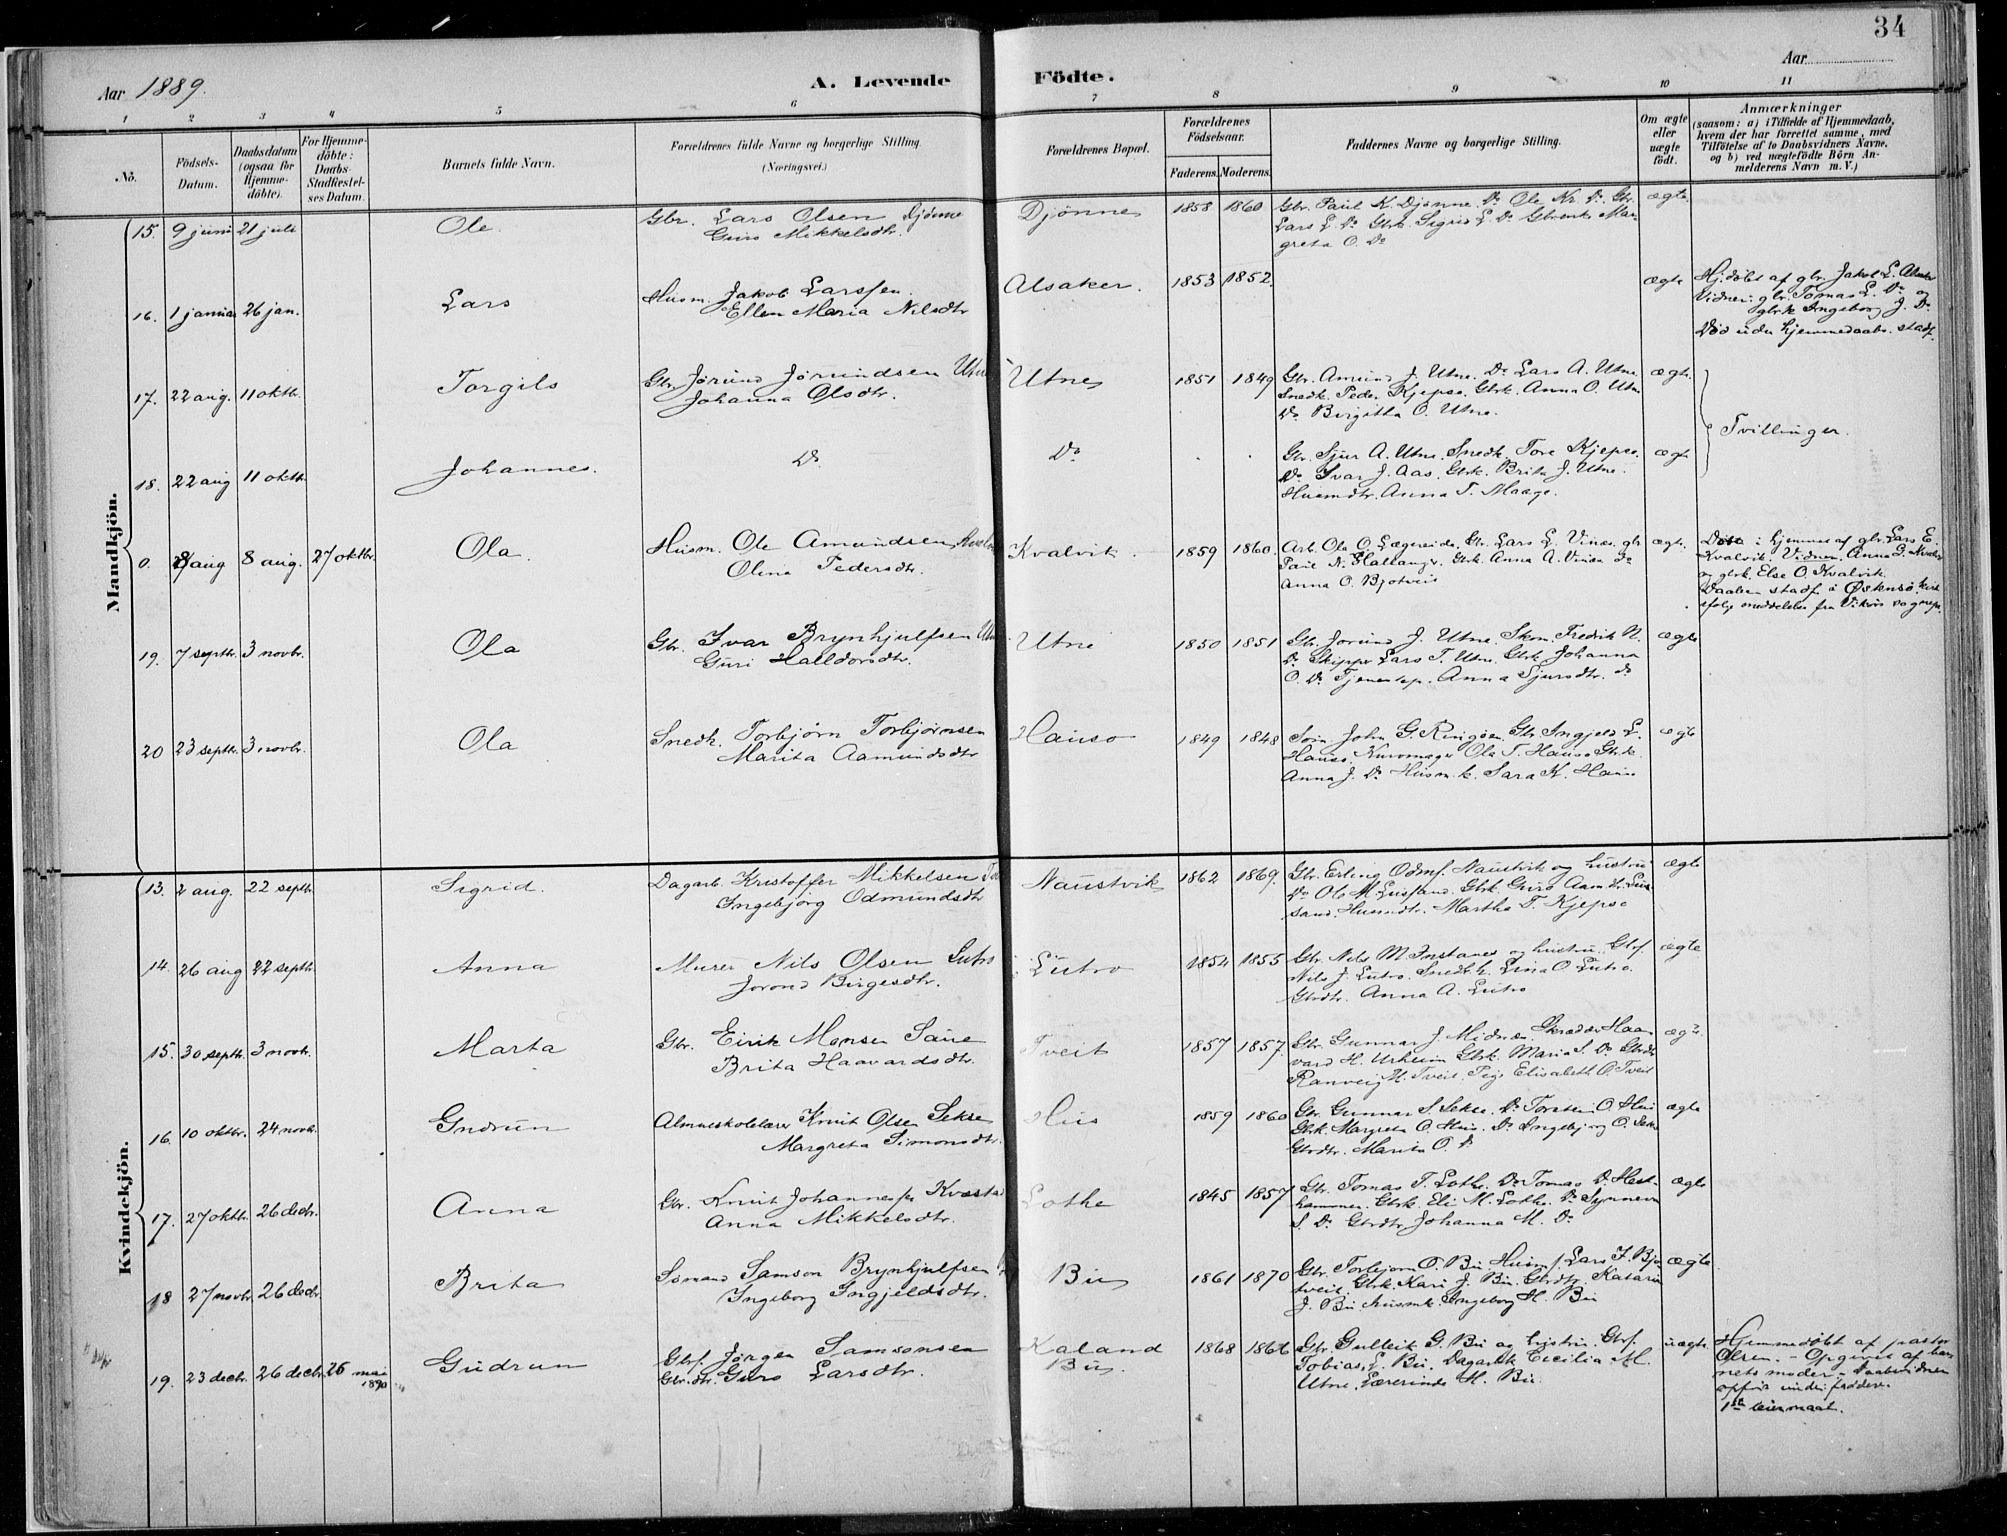 34
Aar 1889.
A. Levende Födte.
Aar
1 2 3 4 5 6 7 8 9 10 11
No.
Födsels-Datum.
Daabsdatum (ogsaa för Hjemme-döbte).
For Hjemme-döbte: Daabs-Stadfæstel-ses Datum.
Barnets fulde Navn.
Forældrenes fulde Navne og borgerlige Stilling. (Næringsvei.)
Forældrenes Bopæl.
Forældrenes Födselsaar.
Faderens. Moderens.
Faddernes Navne og borgerlige Stilling.
Om ægte eller uægte födt.
Anmærkninger (saasom: a) i Tilfælde af Hjemmedaab, hvem der har forrettet samme, med Tilföielse af to Daabsvidners Navne, og b) ved uægtefödte Börn An-melderens Navn m. V.)
Mandkjön.
15. 9 juni 21 juli Ole Gbr. Lars Olsen Djönne Djönne 1858 1860 Gbr. Paul K. Djönne. Do Ole Kr. Do Gbr. ægte
Guro Mikkelsdtr. Lars L. Do Gbrk. Sigrid L. Do Gbrenk. Mar
greta O. Do
16. 1 januar 26 jan. Lars Husm. Jakob Larssen. Alsaker. 1853 1852 ægte Hjdöbt af gbr. Jakob L. Alsaker
Ellen Maria Nilsdtr Vidner: gbr. Tomas L. Do og
gbrk Ingeborg J. Do
Död uden hjemmedaabs. stadf.
17. 22 aug. 11 oktbr. Torgils Gbr. Jörund Jörundsen Utne Utne 1851 1849 Gbr. Amund J. Utne. Do Lars A. Utne. ægte.
Johanna Olsdtr. Snedk. Peder Kjepso. Gbrk. Anna O. Utne
Do Birgitha O. Utne.
Tvillinger.
18. 22 aug 11 oktbr Johannes. Do Do . . Gbr. Sjur A. Utne. Snedk. Tore Kjepso. ægte
Do Ivar J. Aas. Gbrk. Brita J. Utne.
Husmdtr. Anna T. Maage.
0. 8 aug 8 aug. 27 oktbr. Ola. Husm. Ole Amundsen Kvalvik. 1859 1860. Arb. Ola O. Lægereide. Gbr. Lars L. Vines. gbr. ægte. Döbt i hjemmet af gbr. Lars E.
Olina Pedersdtr. Paul N. Hallanger. Gbrk. Anna A. Vines Do Kvalvik. Vidner. Anna L. Kvalvik
Anna O. Bjotveit og gbrk. Else O. Kvalvik.
Daaben stadf. i Östensö kirke
ifölge meddelelse fra Vikörs sognepr.
19. 7 septbr. 3 novbr. Ola Gbr. Ivar Brynhjulfsen Utne Utne 1850 1851 Gbr. Jorund J. Utne. Skom. Fredrik N. ægte
Guri Halldorsdtr. Do Skipper Lars T. Utne. Gbrk. Johanna
O. Do Tjenestep. Anna Sjursdtr. Do
20 23 septbr. 3 novbr. Ola Snedk. Torbjörn Torbjörnsen Hauso 1849 1848 John G. Ringöen. Gbr Ingjeld L. ægte
Marita Aamundsdtr Hauso. Ola T. Hauso Gbrk.
Anna J. Do Husm.k. Sara K. Hauso
Kvindekjön.
13. 2 aug. 22 septbr. Sigrid. Dagarb. Kristoffer Mikkelsen Naustvik 1862 1869. Gbr. Erling Odmf. Naustvik og hustru. ægte
Ingebjörg Odmundsdtr Do Ole M. Eusfand. Gbrk. Guro Aamdtr.
sand. Husmdtr. Martha T. Kjepso
14. 26 aug 22 septbr. Anna Murer Nils Olsen Lutro Lutro 1854 1855 Gbr. Nils M. Instanes og hustru. Gbrf. ægte
Jorond Birgesdtr. Nils J. Lutro. Snedk.k. Lina O. Lutro.
Gbrdtr. Anna A. Lutro
15. 30 septbr. 3 novbr. Marta Gbr. Eirik Monsen Saue Tveit 1857 1857. Gbr. Gunnar J. Midnæs. Skrædder Haa- ægte.
Brita Haavardsdtr. vard H. Urheim Gbrk. Maria S. Do Gbrdtr
Ranveig M. Tveit. Pige Elisabeth O. Tveit
16. 10 oktbr. 24 novbr. Gudrun Almueskolelærer Knut Olsen Sekse Hus 1859 1860 Gbr. Gunnar S. Sekse. Do Torstein O. Hus ægte
Margreta Simonsdtr. Gbrk. Margreta O. Hus. Do Ingebjorg O. Sekse
Gbrdtr. Marita O. Do
17. 27 oktbr. 26 decbr. Anna Gbr. Knut Johannessen Kvæstad Lothe 1845 1857 Gbr. Tomas T. Lothe. Do Tomas D. Hest- ægte
Anna Mikkelsdtr. hammer. Gbrk. Eli M. Lothe. Do Synneva
S. Do Gbrdtr. Johanna M. Do
18 27 novbr. 26 decbr. Brita Sömand Samson Brynhjulfsen Bu 1861 1870 Gbr. Torbjorn O. Bu. Husmf. Lars I. Bjo ægte.
Ingeborg Ingjeldsdtr. tveit. Gbrk. Kari J. Bu. Gbrdtr. Katarina
J. Bu. husmk. Ingeborg H. Bu
19. 23 decbr. 26 decbr. 26 mai 1890 Gudrun Gbrf. Jörgen Samsonsen Kaland 1868 1866 Gbr. Gulleik G. Bu og hustru. Gbrf. uægte. Hjemmedöbt af pastor
Gbr.dtr. Guro Larsdtr. Bu. Tobias L. Bu. Dagarbk Cecilia M. Olsen. – Opgivet af bar
Utne. Lærerinde H. Bu. nets moder. – Daabsvidner
opförs under faddere.
1ste leiermaal.